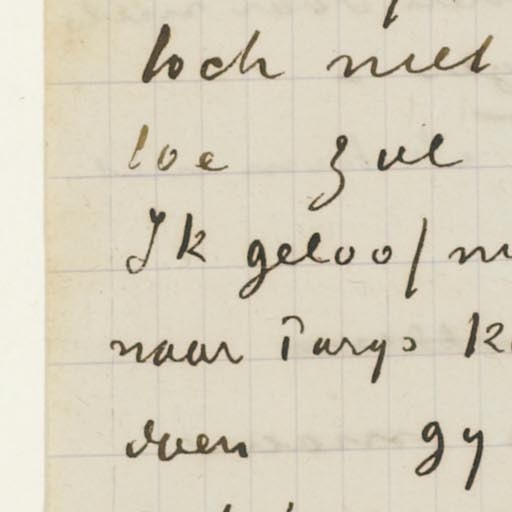 toch niet
toe zul
Ik geloof
naar Parys
doen gy